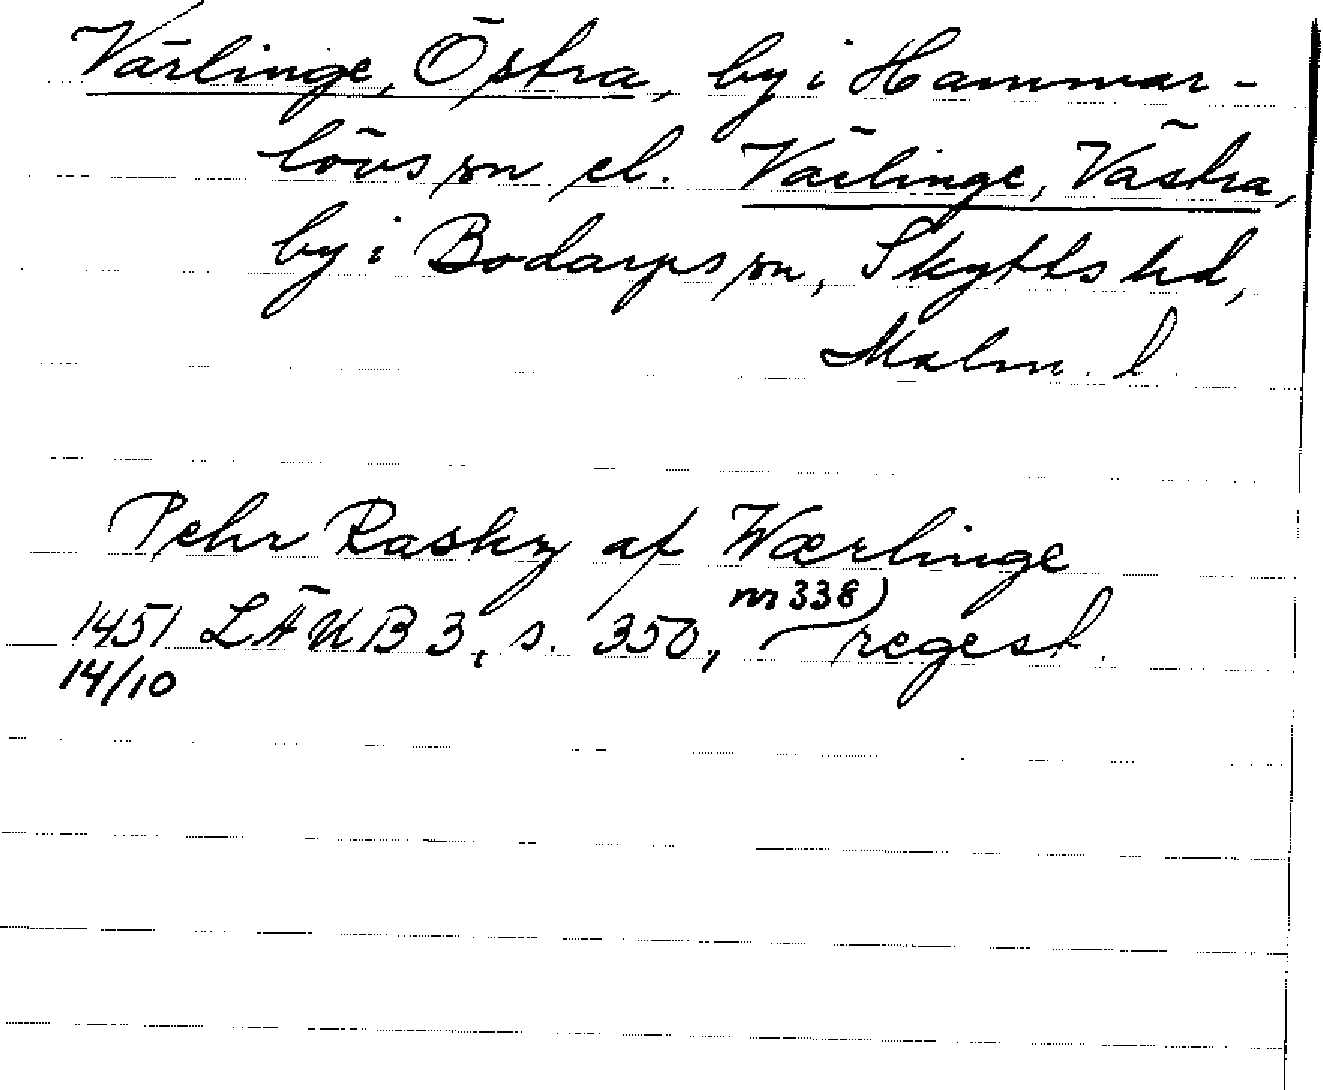 Värlinge, Östra, by i Hammar-
lövs sn el. Värlinge, Västra,
by i Bodarps sn, Skytts hd,
Malm. l.
Pehr Rasky af Wærlinge
nr 338)
1451 LÄUB 3, s. 350, regest.
14/10